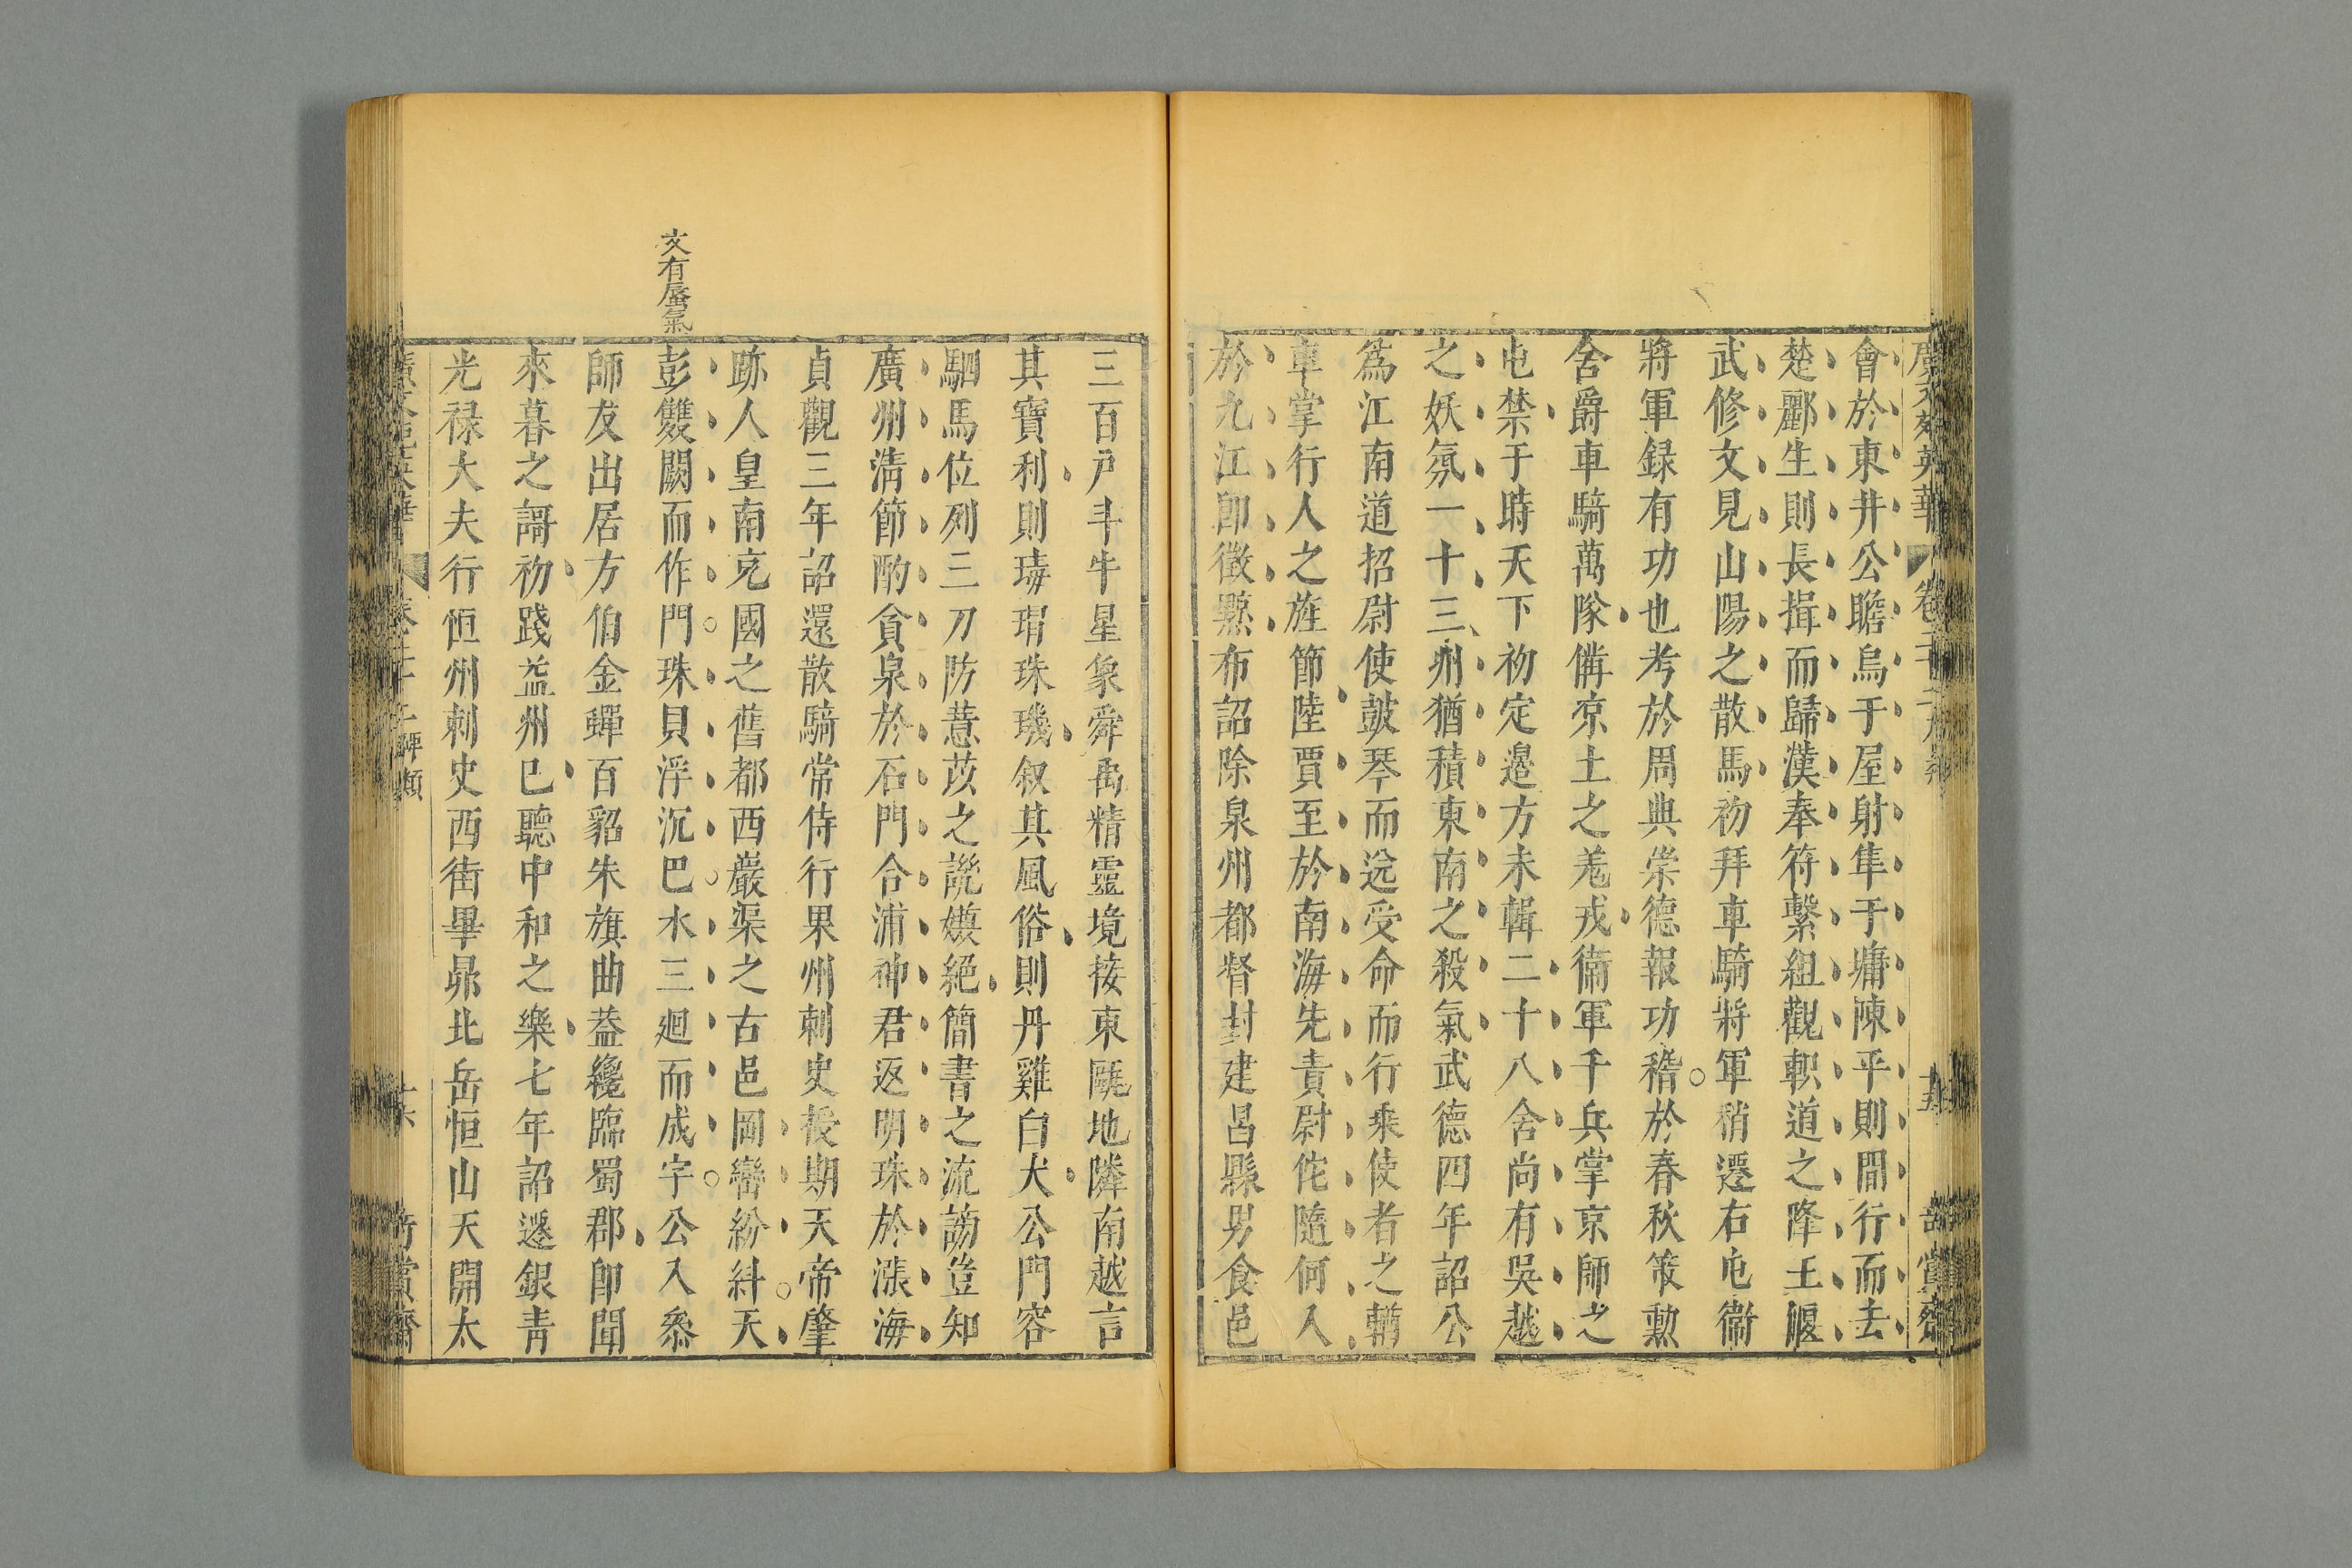 會於東井公瞻烏于屋射隼于墉陳平則間行而去
楚酈生則長揖而歸漢奉符繫組觀軹道之降王偃
武修文見山陽之散馬初拜車騎將軍稍遷右屯衞
將軍録有功也考於周典崇德報功稽於春秋策勲
舍爵車騎萬隊備京土之羗戎衞軍千兵掌京師之
屯禁于時天下初定邉方未輯二十八舍尚有吳越
之妖氛一十三州猶積東南之殺氣武德四年詔公
爲江南道招尉使皷琴而送受命而行乘使者之輶
車掌行人之旌節陸賈至於南海先責尉佗隨何入
於九江卽徵黥布詔除泉州都督封建昌縣男食邑
三百戸斗牛星象舜禹精靈境接東甌地隣南越言
其寶利則瑇瑁珠璣叙其風俗則丹雞白犬公門容
駟馬位列三刀防薏苡之讒嫫絕簡書之流謗豈知
廣州清節酌貪泉於石門合浦神君返明珠於漲海
貞觀三年詔還散騎常侍行果州刺史授期天帝肇
跡人皇南充國之舊都西巖渠之古邑岡巒紛紏天
文有蜃氣
彭雙闕而作門珠貝浮沉巴水三廻而成字公入叅
師友出居方伯金蟬百貂朱旗曲葢纔臨蜀郡卽聞
來暮之謌初踐益州巳聽中和之樂七年詔遷銀青
光禄大夫行恒州刺史西街畢昴北岳恒山天開太